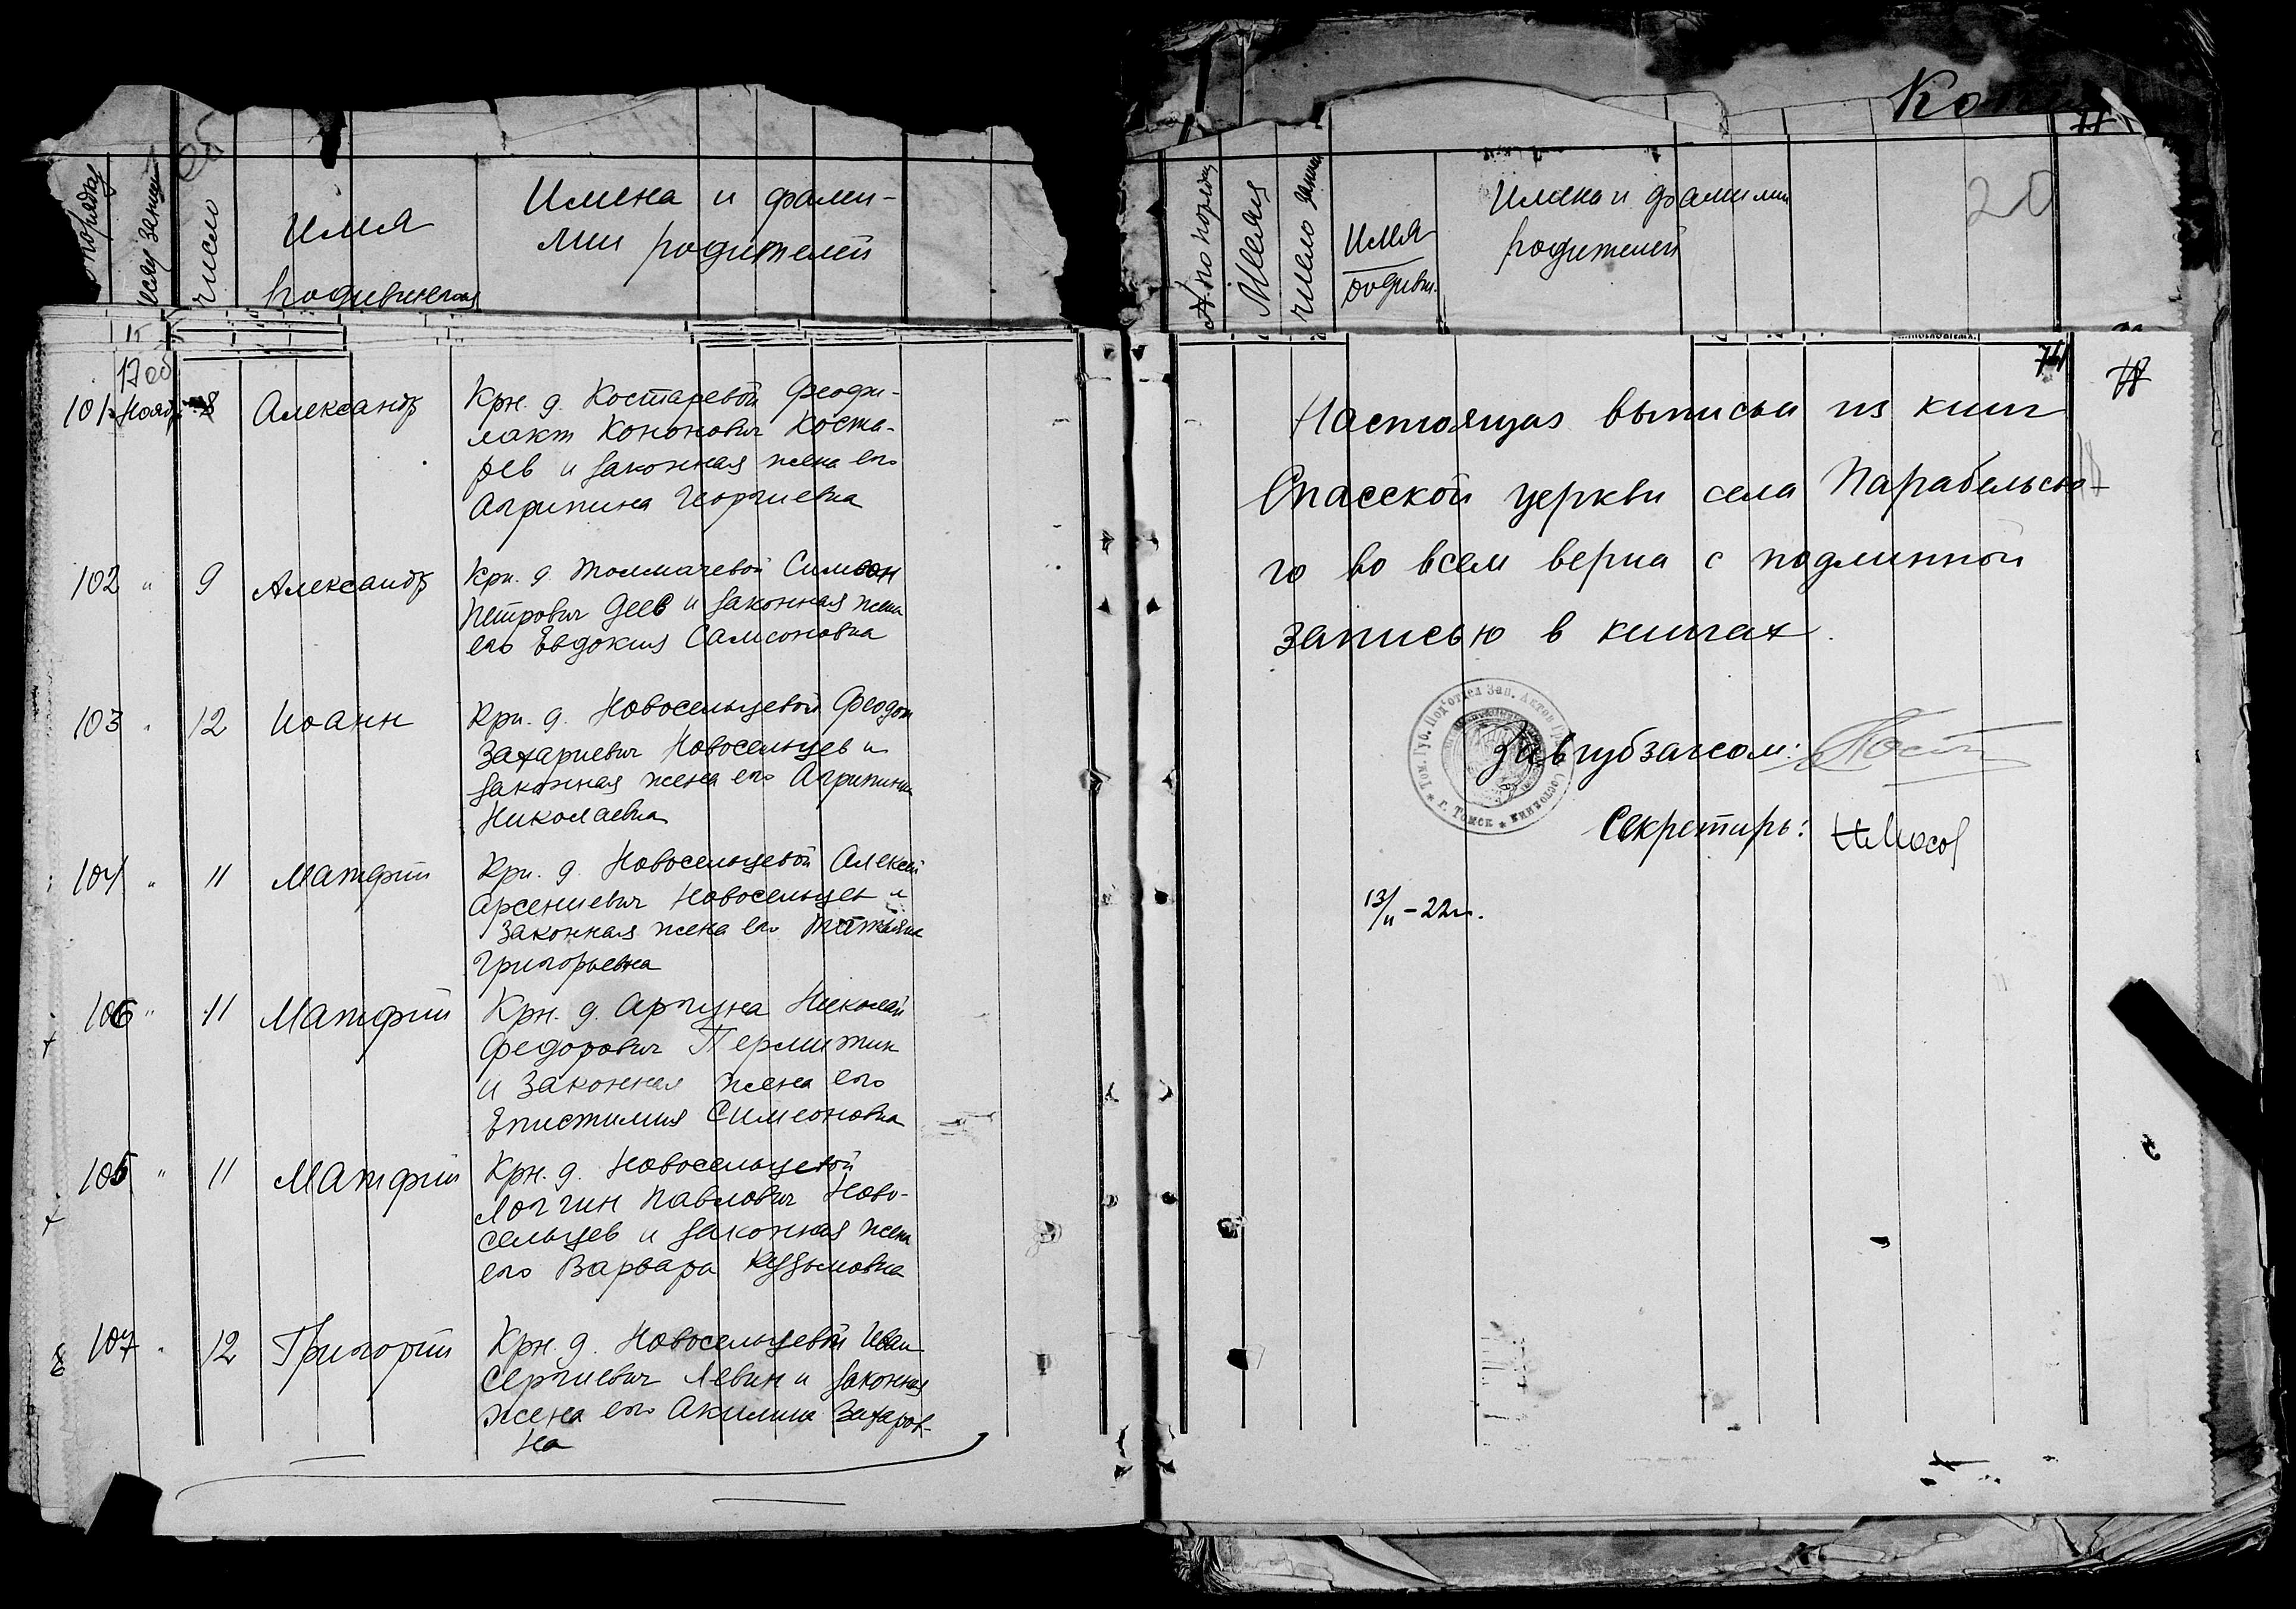 по порядку
месяц
число
Имя
родившегося
Имена и фами-
лии родителей
17 об
101 Ноябр 8 Александр Крн. д. Костаревой Феофи-
лакт Кононович Коста-
рев и законная жена его
Агрипина Георгиевна
102 " 9 Александр Крн. д. Толмачевой Симеон
Петрович Деев и законная жена
его Евдокия Самсоновна
103 " 12 Иоанн Крн. д. Новосельцевой Феодот
Захариевич Новосельцев и
законная жена его Агрипина
Николаевна
104 " 11 Матфий Крн. д. Новосельцевой Алексей
Арсениевич Новосельцев и
законная жена его Татьяна
Григорьевна
106 " 11 Матфий Крн. д. Аргуна Николай
Федорович Пермитин
и законная жена его
Епистимия Симеоновна
105 " 11 Матфий Крн. д. Новосельцевой
Логгин Павлович Ново-
сельцев и законная жена
его Варвара Кузьмовна
107 " 12 Григорий Крн. д. Новосельцевой Иван
Сергиевич Левин и законная
жена его Акилина Захаров-
на
Копия
№ по порядку
Месяц
число
Имя
родивш.
Имена и фамилии
родителей
20
Настоящая выписка из книг
Спасской церкви села Парабельско-
го во всем верна с подлинной
записью в книгах.
Том. Губ. Под'отдел Зап. Актов Гр. Состояния
г. Томск
Завгубзагсом:
Секретарь:
13/II – 22 г.